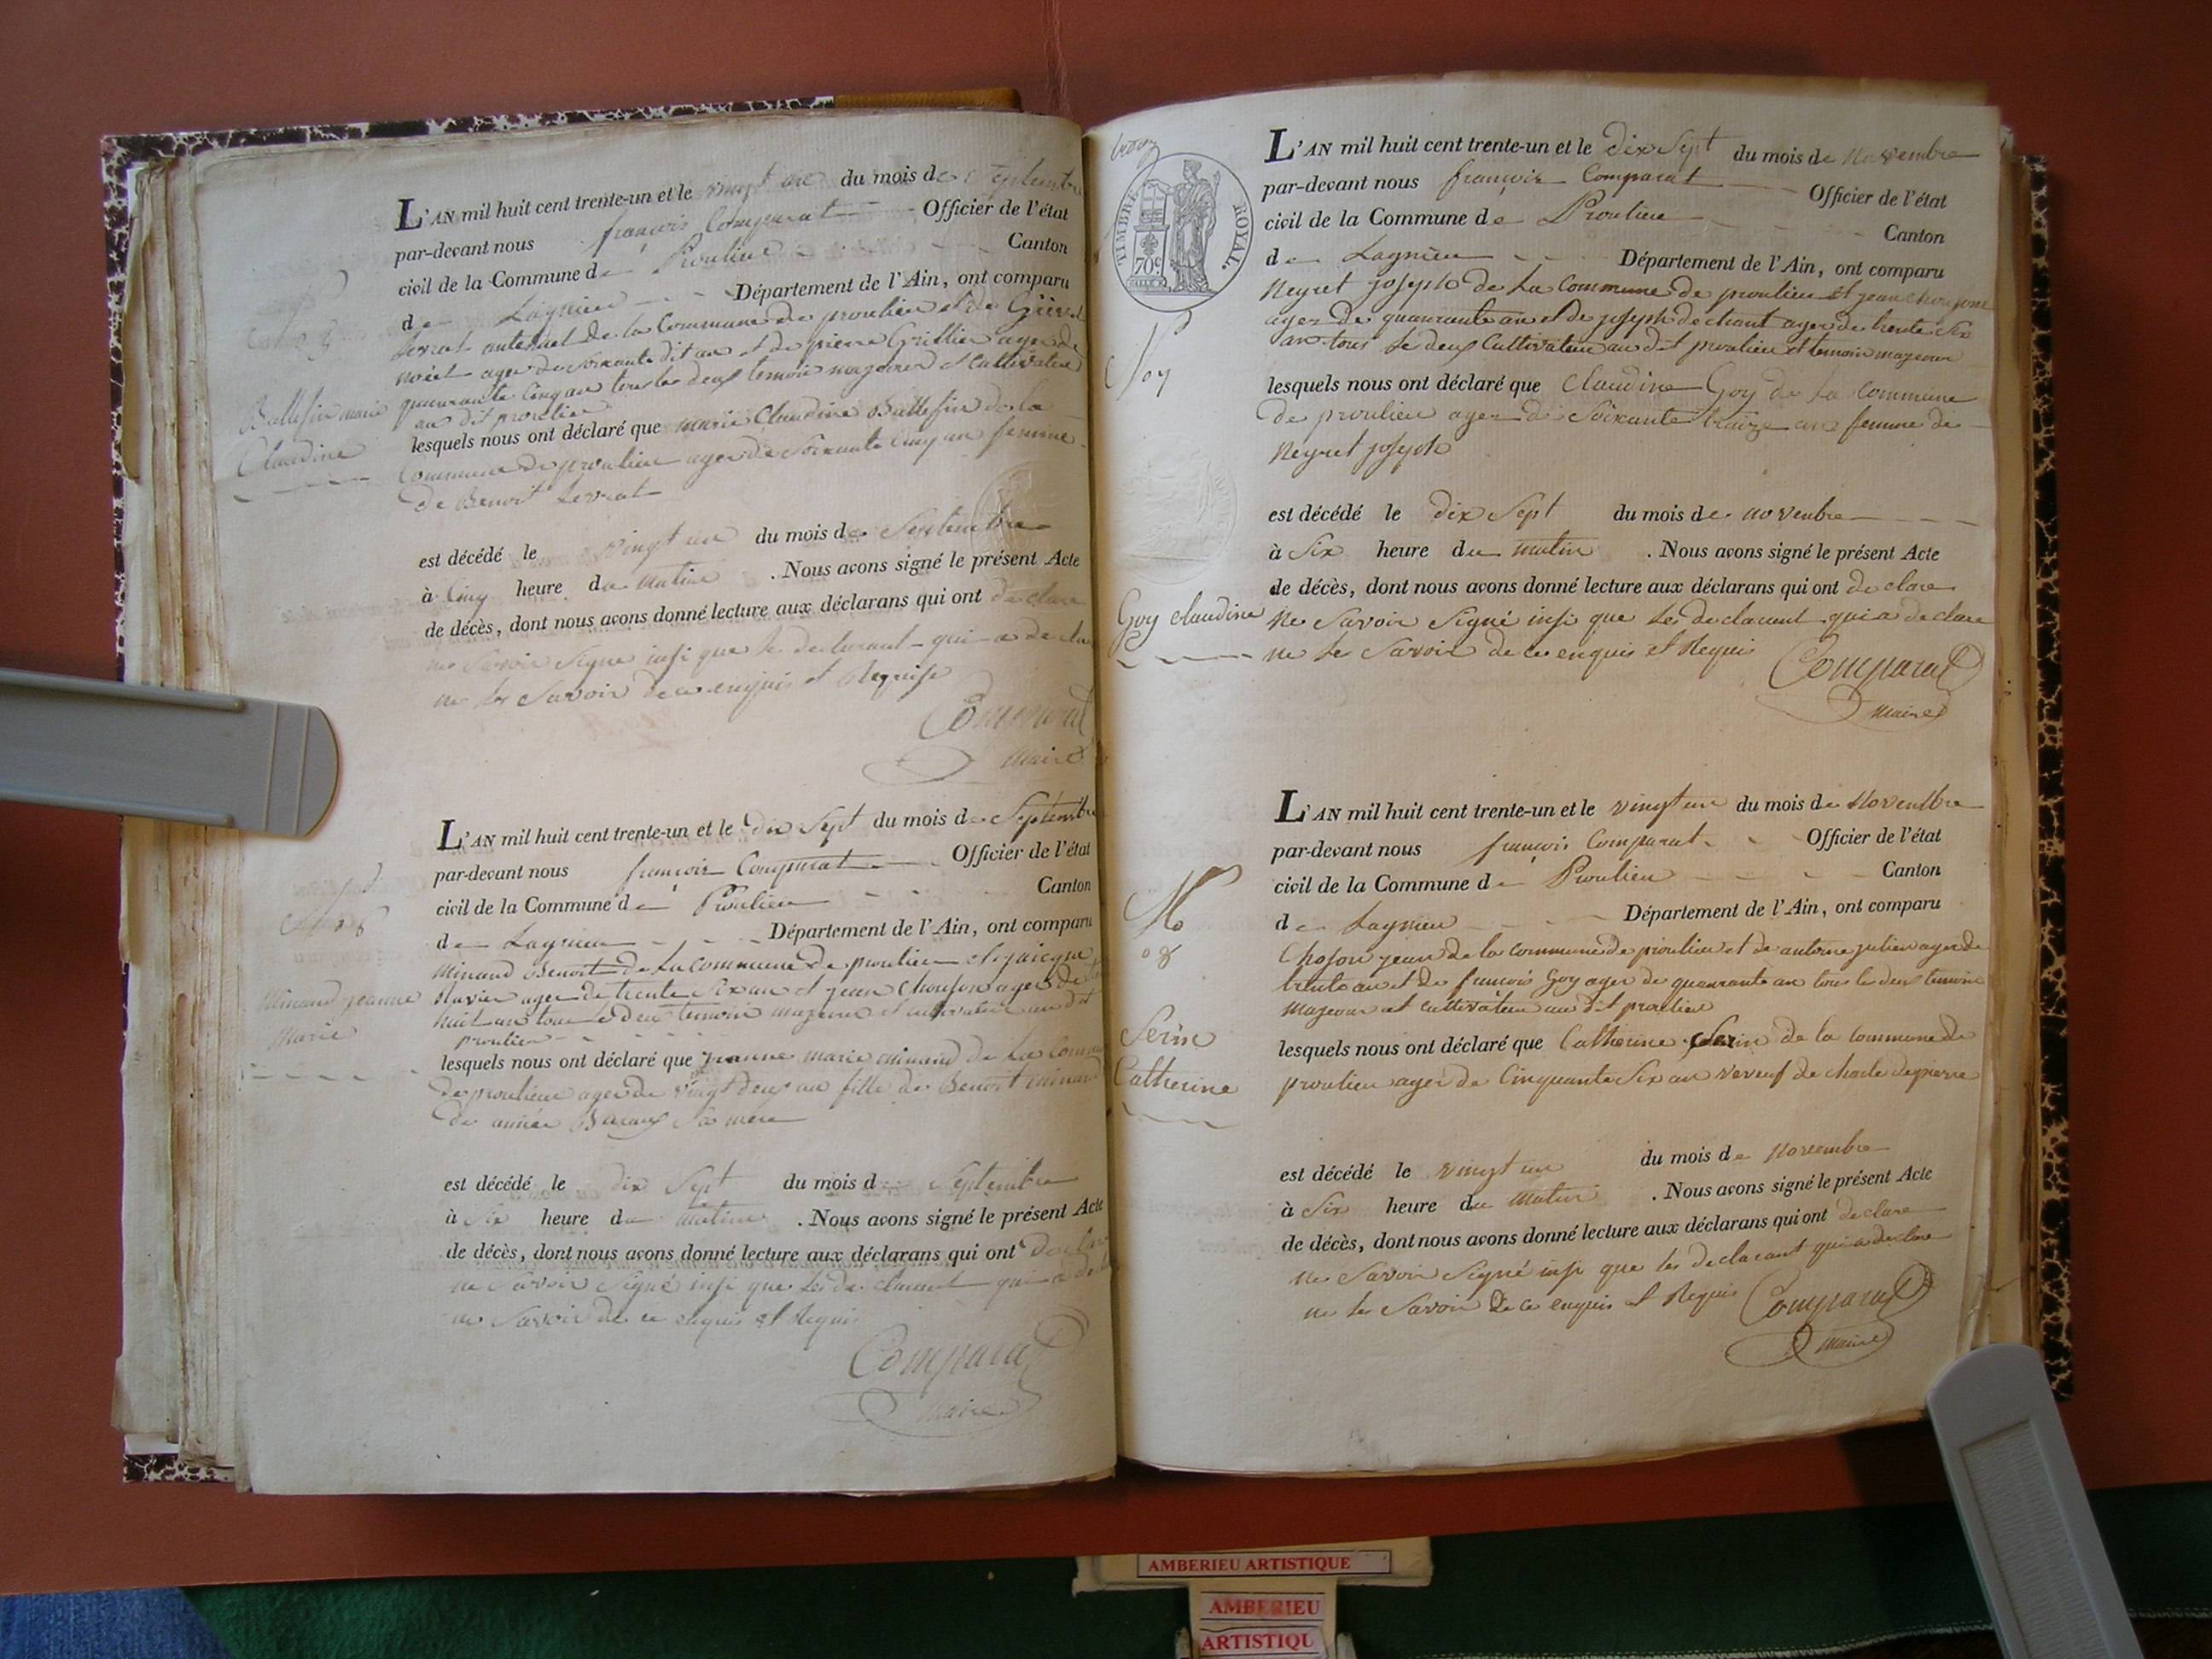 L'AN mil huit cent trente-un et le vingt un du mois de Septembre
par-devant nous françois Comparat Officier de l'état
civil de la Commune de Proulieu Canton
de Lagnieu Département de l'Ain, ont comparu
Levrat de la Commune de proulieu et de
ager de soixante dit an et de pierre Grillier ager de
quaurante Cinq an tous les deux temoin majeur et Cultivateur
au dit proulieu
Ballefin marie
Claudine
lesquels nous ont déclaré que marie Claudine Ballefin de la
Commune de proulieu ager de Soixante Cinq an femme
de Benoit Levrat
est décédé le vingt un du mois de Septembre
à Cinq heure du matin . Nous avons signé le présent Acte
de décès, dont nous avons donné lecture aux déclarans qui ont declare
ne Savoir Signe insi que le declarant qui a declare
ne le Savoir de ce enquis et Requise
Comparat
Maire
L'AN mil huit cent trente-un et le dix Sept du mois de Septembre
par-devant nous françois Comparat Officier de l'état
civil de la Commune de Proulieu Canton
de Lagnieu Département de l'Ain, ont comparu
minand Benoit de La Commune de proulieu et
ager de trente Six an et jean Chouson ager de
huit an tous les deux temoin majeur et cultivateur au dit
proulieu
Minand jeanne
Marie
lesquels nous ont déclaré que jeanne marie minand de La Commune
de proulieu ager de vingt deux an fille de Benoit minand
de Sa mere
est décédé le dix Sept du mois de Septembre
à Six heure du matin . Nous avons signé le présent Acte
de décès, dont nous avons donné lecture aux déclarans qui ont declare
ne Savoir Signé insi que les declarant qui a declare
ne Savoir de ce enquis et Requis
Comparat
Maire
TIMBRE ROYAL.
70c
L'AN mil huit cent trente-un et le dix Sept du mois de Novembre
par-devant nous françois Comparat Officier de l'état
civil de la Commune de Proulieu Canton
de Lagnieu Département de l'Ain, ont comparu
Neyret joseph de La Commune de proulieu et jean
ager de quaurante an et de joseph dechant ager de trente Six
an tous le deux Cultivateur au dit proulieu et temoin majeur
No 7
lesquels nous ont déclaré que Claudine Goy de La Commune
de proulieu ager de Soixante traize an femme de
Neyret joseph
est décédé le dix Sept du mois de novembre
à Six heure du matin . Nous avons signé le présent Acte
de décès, dont nous avons donné lecture aux déclarans qui ont declare
Goy Claudine
ne Savoir Signé insi que Les declarant qui a declare
ne le Savoir de ce enquis et Requis
Comparat
Maire
L'AN mil huit cent trente-un et le vingt un du mois de Novembre
par-devant nous françois Comparat Officier de l'état
civil de la Commune de Proulieu Canton
de Lagnieu Département de l'Ain, ont comparu
Choson jean de la commune de proulieu et de antoine julien ager de
trente an et de françois Goy ager de quaurante an tous les deux temoin
Majeur et cultivateur au dit proulieu
Serin
Catherine
lesquels nous ont déclaré que Catherine Serin de la commune de
proulieu ager de Cinquante Six an veveuf de charle depierre
est décédé le vingt un du mois de Novembre
à Six heure du matin . Nous avons signé le présent Acte
de décès, dont nous avons donné lecture aux déclarans qui ont declare
ne Savoir Signé insi que les declarant qui a declare
ne le Savoir de ce enquis et Requis
Comparat
Maire
AMBERIEU ARTISTIQUE
AMBERIEU
ARTISTIQU